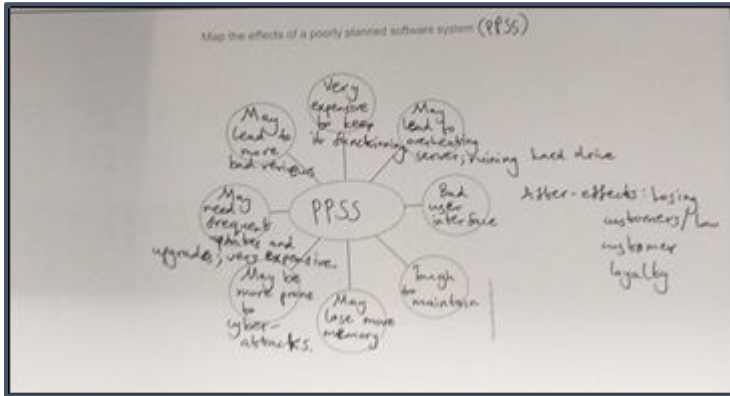 Map the effects of a poorly planned software system (PPSS)
Very
expensive
to keep
it functioning
May
lead to
overheating
server, ruining hard drive
Bad
user
interface
Tough
to
maintain
May
lose more
memory
May be
more prone
to
cyber-
attacks.
May
need
frequent
updates and
upgrades; very expensive.
May
lead to
more
bad reviews
PPSS
After-effects: Losing
customers/low
customer
loyalty